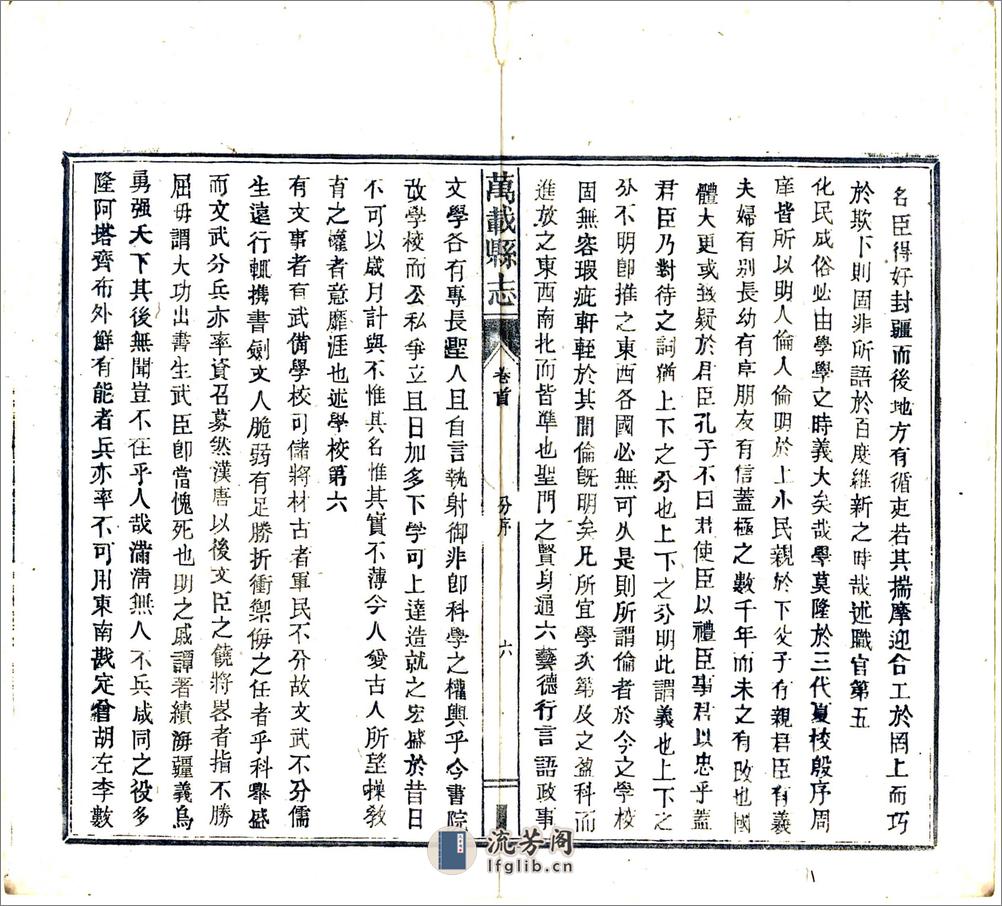 名臣得好封疆而後地方有循吏若其揣摩迎合工於罔上而巧
於欺下則固非所語於百度維新之時哉述職官第五
化民成俗必由學學之時義大矣哉學莫隆於三代夏校殷序周
庠皆所以明人倫人倫明於上小民親於下父子有親君臣有義
夫婦有別長幼有序朋友有信蓋極之數千年而未之有改也國
體大更或致疑於君臣孔子不曰君使臣以禮臣事君以忠乎蓋
君臣乃對待之詞猶上下之分也上下之分明此謂義也上下之
分不明即推之東西各國必無可久是則所謂倫者於今之學校
固無容瑕疵軒輊於其間倫既明矣凡所宜學次第及之盈科而
進放之東西南北而皆準也聖門之賢身通六藝德行言語政事
萬載縣志
卷首
分序
六
文學各有專長聖人且自言執射御非即科學之權輿乎今書院
改學校而公私爭立且日加多下學可上達造就之宏盛於昔日
不可以歲月計與不惟其名惟其實不薄今人愛古人所望操教
育之權者意靡涯也述學校第六
有文事者有武備學校可儲將材古者軍民不分故文武不分儒
生遠行輒攜書劍文人脆弱有足勝折衝禦侮之任者乎科舉盛
而文武分兵亦率資召募然漢唐以後文臣之饒將畧者指不勝
屈毋謂大功出書生武臣即當愧死也明之戚譚著績海疆義烏
勇强天下其後無聞豈不在乎人哉滿淸無人不兵咸同之役多
隆阿塔齊布外鮮有能者兵亦率不可用東南戡定曾胡左李數
流芳阁
lfglib.cn